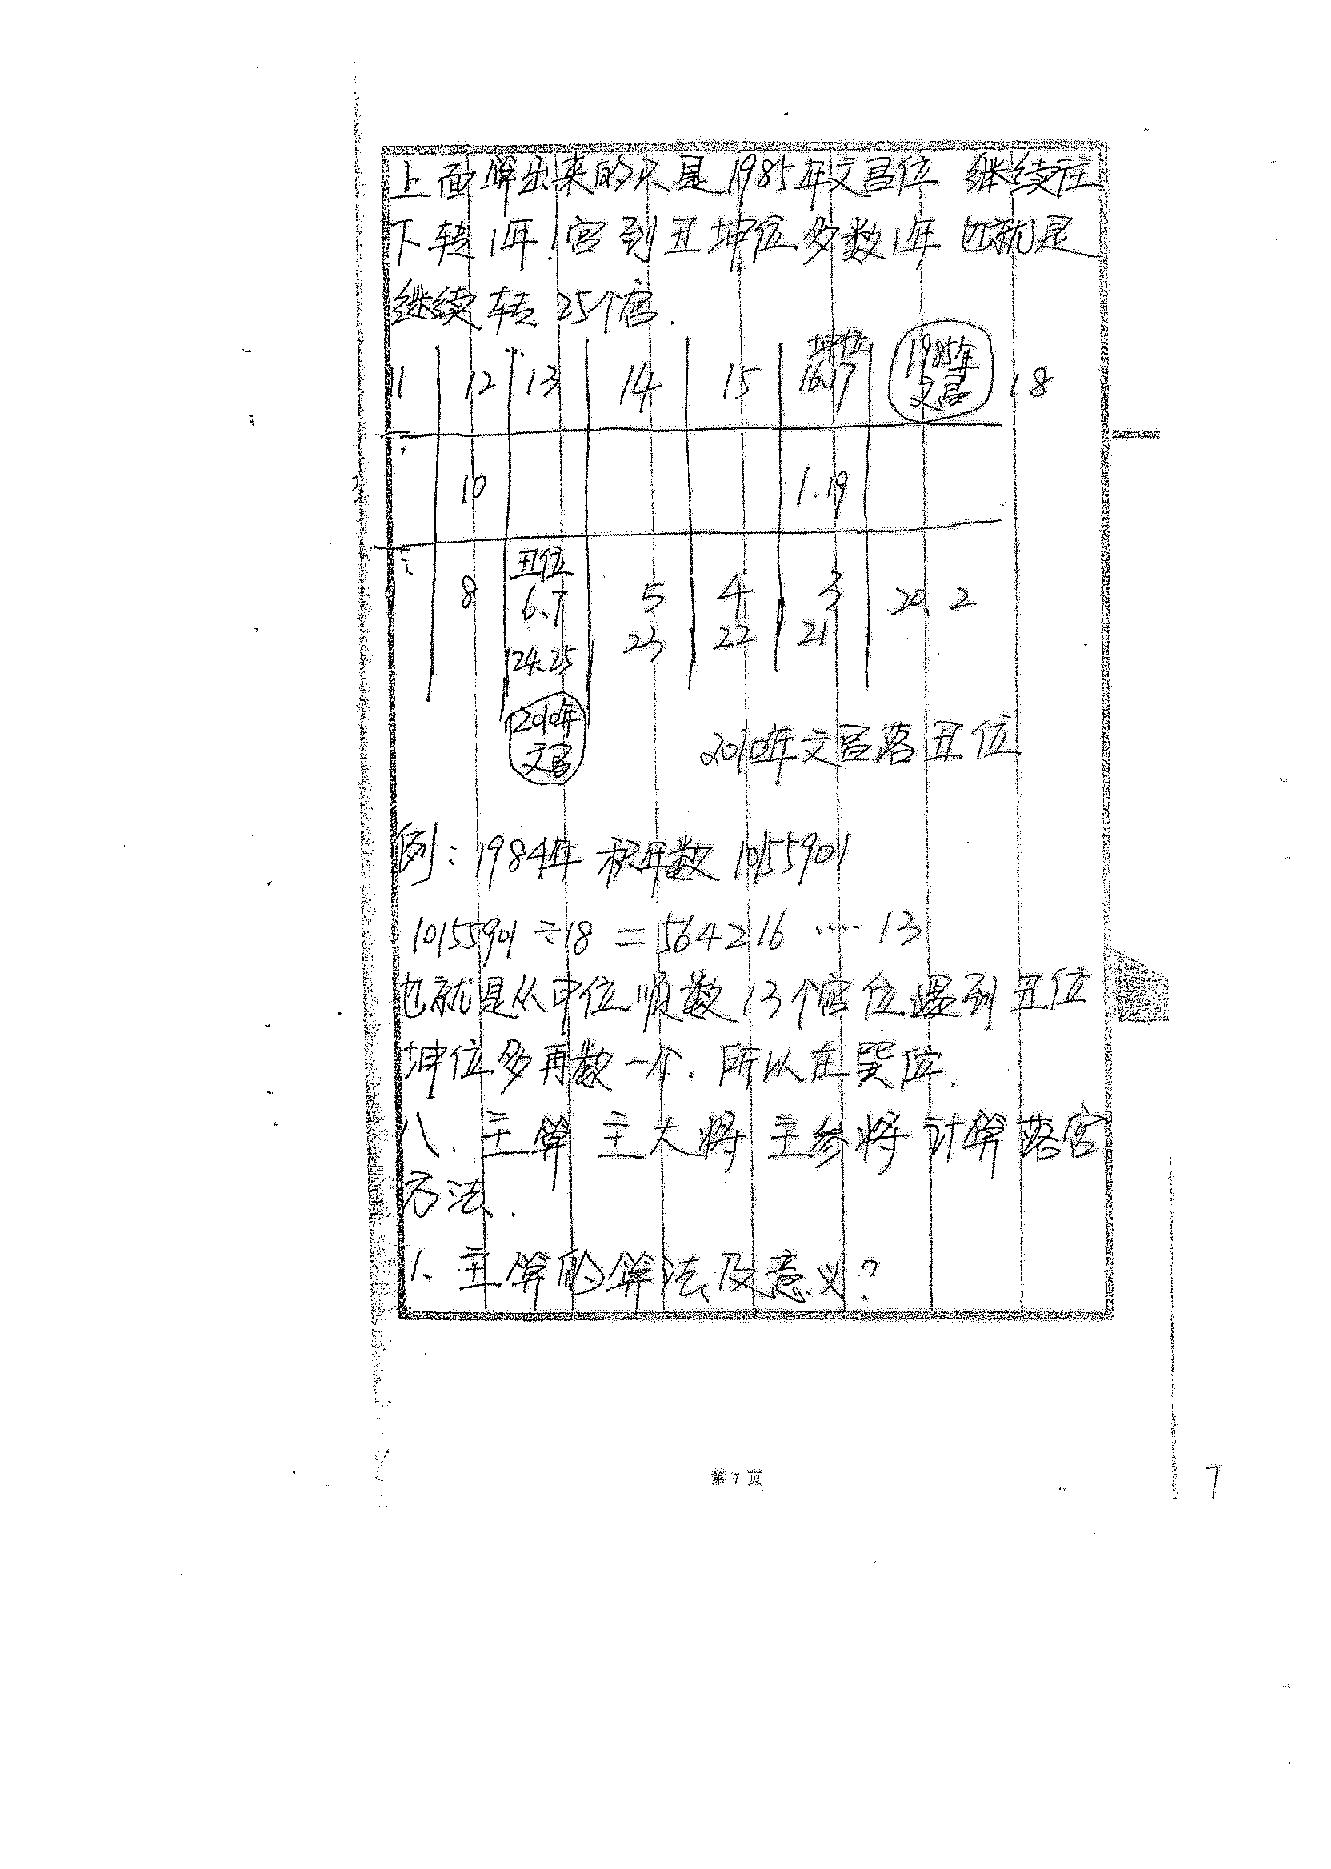 上面算出来的只是1985年文昌位 继续往
下转1年1宫到丑坤位多数1年 也就是
继续转25个宫.
坤位 1985年
11 12 13 14 15 16.17 文昌 18
10 1.19
丑位
8 6.7 5 4 3 20. 2
24.25 23 22 21
2010年
文昌
2010年文昌落丑位
例:1984年 积年数 10155901
10155901÷18=564216 … 13
也就是从申位顺数13个宫位遇到丑位
坤位多再数一个.所以在巽位.
八、主算 主大将 主参将 计算落宫
方法.
1、主算的算法及意义?
第 7 页
7